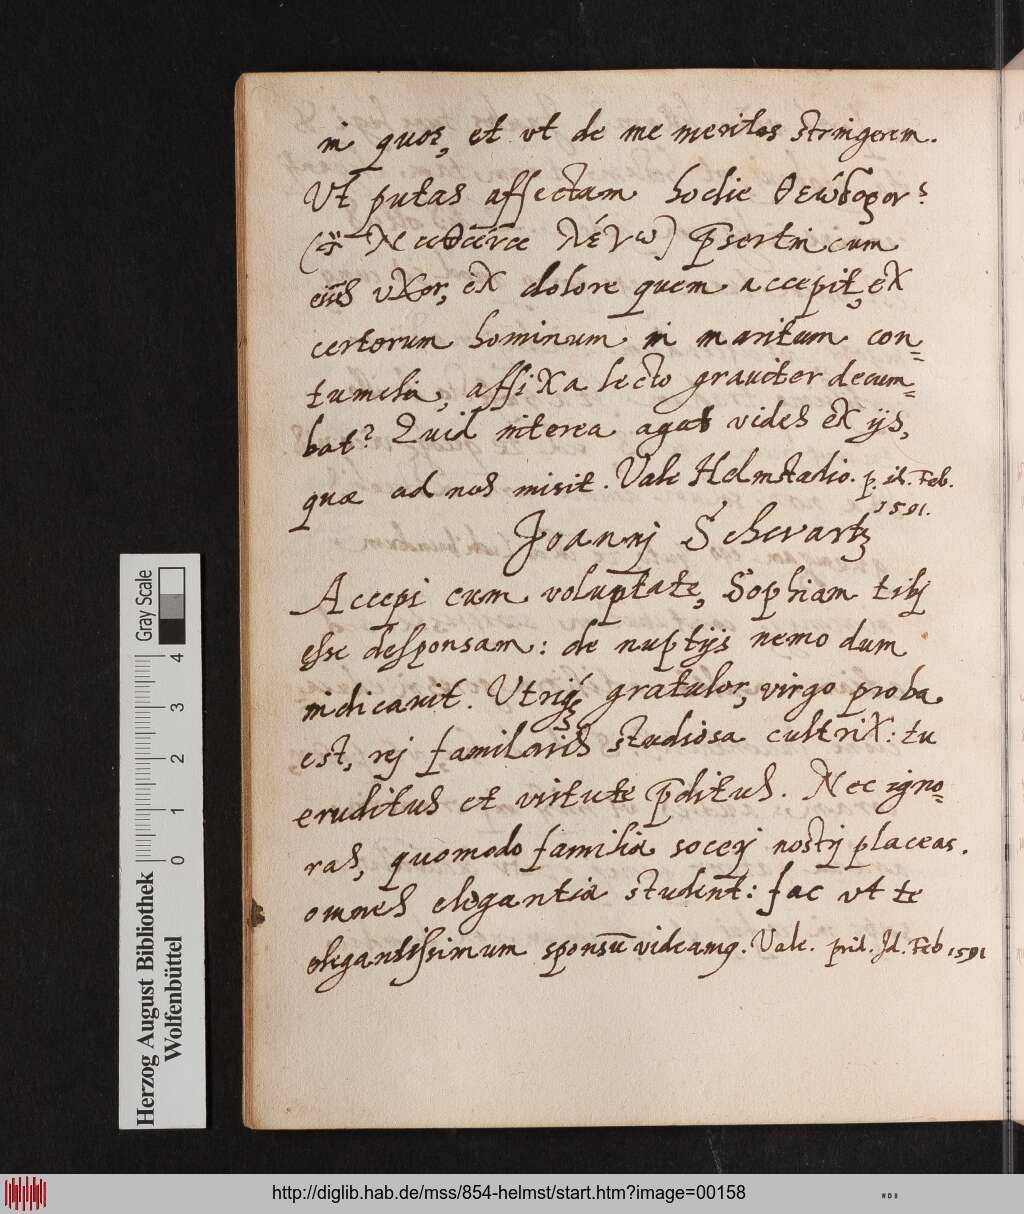 in quos, et ut de me meritos stringerem.
Ut putas affectam hodie Θεώδορον?
(τὸν Νεεθαίναι λέγω) p̄sertim cum
eius uxor, ex dolore quem accepit, ex
certorum hominum in maritum con=
tumelia, affixa lecto graviter decum=
bat? Quid interea agat vides ex ijs,
quae ad nos misit. Vale Helmstadio. p. id. Feb.
1591.
Joannj Schwartz
Accepi cum voluptate, Sophiam tibj
esse desponsam: de nuptijs nemo dum
indicavit. Utriq́ꝫ gratulor, virgo proba
est, rej familiaris studiosa cultrix: tu
eruditus et virtute p̄ditus. Nec igno=
ras, quomodo familia socerj nostrj placeas.
omnes elegantiae student: fac ut te
elegantissimum sponsū videamꝰ. Vale. prid. Jd. Feb 1591
Herzog August Bibliothek
Wolfenbüttel
Gray Scale
0 1 2 3 4
http://diglib.hab.de/mss/854-helmst/start.htm?image=00158